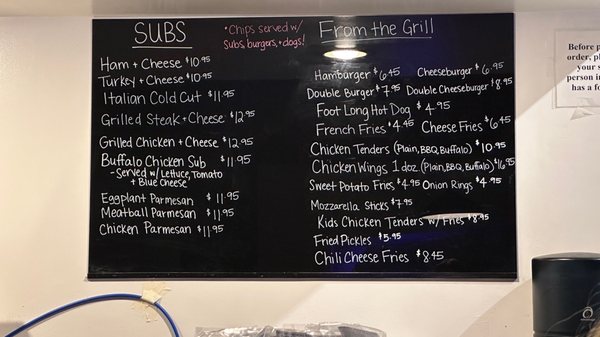 SUBS
Ham + Cheese $10.95
Turkey + Cheese $10.95
Italian Cold Cut $11.95
Grilled Steak + Cheese $12.95
Grilled Chicken + Cheese $12.95
Buffalo Chicken Sub $11.95
- Served w/ Lettuce, Tomato
+ Blue Cheese
Eggplant Parmesan $11.95
Meatball Parmesan $11.95
Chicken Parmesan $11.95
*Chips served w/
Subs, burgers, + dogs!
From the Grill
Hamburger $6.45 Cheeseburger $6.95
Double Burger $7.95 Double Cheeseburger $8.95
Foot Long Hot Dog $4.95
French Fries $4.45 Cheese Fries $6.45
Chicken Tenders (Plain, BBQ, Buffalo) $10.95
Chicken Wings 1 doz. (Plain, BBQ, Buffalo) $16.95
Sweet Potato Fries $4.95 Onion Rings $4.95
Mozzarella Sticks $7.95
Kids Chicken Tenders w/ Fries $8.95
Fried Pickles $5.95
Chili Cheese Fries $8.45
Before p
order, pl
your s
person in
has a fo